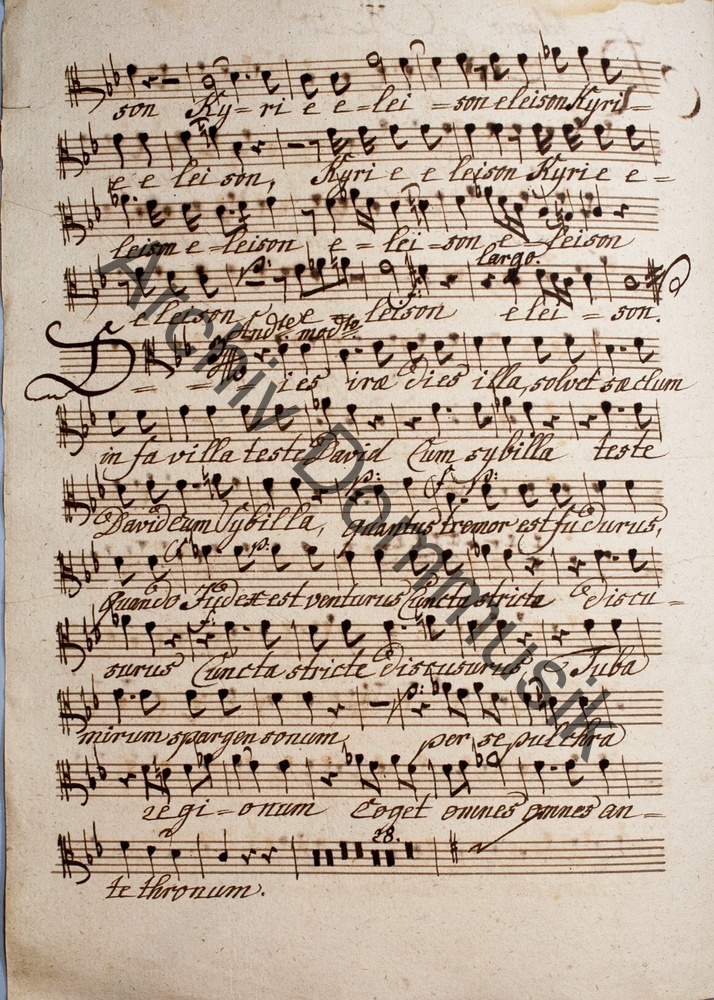 son Ky- ri e e-lei -son eleison Kyri-
e e lei son, Kyri e e leison Kyrie e=
leison e-leison e=lei-son e-leison
largo.
e leison e= leison elei-son.
Andte modto
D = = = ies iræ dies illa, solvet sæclum
in favilla teste David Cum sybilla teste
David cum Sybilla, quantus tremor est fudurus,
p: f p:
Quando Judex est venturus Cuncta stricta discu=
p:
surus Cuncta stricte discusurus Tuba
mirum spargens sonum per sepulchra
p:
regi-onum Coget omnes omnes an=
28.
te thronum.
Archiv Dommusik